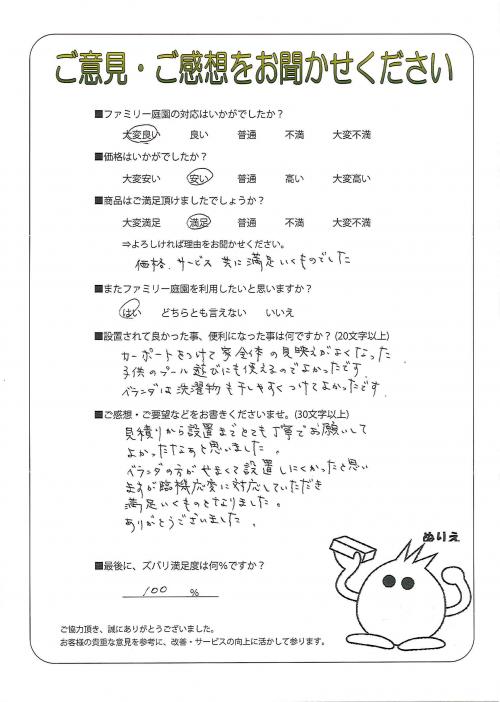 ご意見・ご感想をお聞かせください
■ファミリー庭園の対応はいかがでしたか？
大変良い 良い 普通 不満 大変不満
■価格はいかがでしたか？
大変安い 安い 普通 高い 大変高い
■商品はご満足頂けましたでしょうか？
大変満足 満足 普通 不満 大変不満
⇒よろしければ理由をお聞かせください。
価格、サービス 共に満足いくものでした
■またファミリー庭園を利用したいと思いますか？
はい どちらとも言えない いいえ
■設置されて良かった事、便利になった事は何ですか？(20文字以上)
カーポートをつけて家全体の見映えがよくなった
子供のプール遊びにも使えるのでよかったです
ベランダは洗濯物も干しやすくつけてよかったです
■ご感想・ご要望などをお書きくださいませ。(30文字以上)
見積りから設置までとても丁寧でお願いして
よかったなぁと思いました。
ベランダの方がせまくて設置しにくかったと思い
ますが臨機応変に対応していただき
満足いくものとなりました。
ありがとうございました。
ぬりえ
■最後に、ズバリ満足度は何％ですか？
100 %
ご協力頂き、誠にありがとうございました。
お客様の貴重な意見を参考に、改善・サービスの向上に活かして参ります。